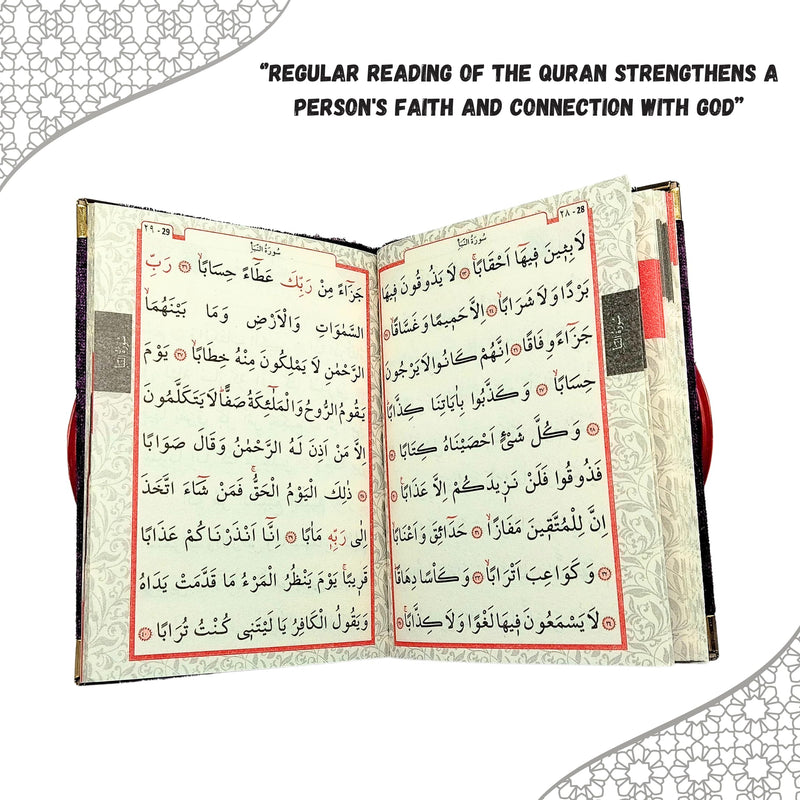 “REGULAR READING OF THE QURAN STRENGTHENS A
PERSON'S FAITH AND CONNECTION WITH GOD”
٢٨ - 28
سُورَةُ النَّبَأِ
لَابِثٖينَ فٖيهَٓا اَحْقَابًاۚ ﴿٢٣﴾ لَا يَذُوقُونَ فٖيهَا
بَرْدًا وَلَا شَرَابًاۙ ﴿٢٤﴾ اِلَّا حَمٖيمًا وَغَسَّاقًاۙ ﴿٢٥﴾
جَزَٓاءً وِفَاقًاۜ ﴿٢٦﴾ اِنَّهُمْ كَانُوا لَا يَرْجُونَ
حِسَابًاۙ ﴿٢٧﴾ وَكَذَّبُوا بِاٰيَاتِنَا كِذَّابًاۜ
﴿٢٨﴾ وَكُلَّ شَيْءٍ اَحْصَيْنَاهُ كِتَابًاۙ ﴿٢٩﴾
فَذُوقُوا فَلَنْ نَزٖيدَكُمْ اِلَّا عَذَابًا۟ ﴿٣٠﴾
اِنَّ لِلْمُتَّقٖينَ مَفَازًاۙ ﴿٣١﴾ حَدَٓائِقَ وَاَعْنَابًاۙ
﴿٣٢﴾ وَكَوَاعِبَ اَتْرَابًاۙ ﴿٣٣﴾ وَكَأْسًا دِهَاقًاۜ ﴿٣٤﴾
لَا يَسْمَعُونَ فٖيهَا لَغْوًا وَلَا كِذَّابًاۚ ﴿٣٥﴾
٢٩ - 29
سُورَةُ النَّبَأِ
جَزَٓاءً مِنْ رَبِّكَ عَطَٓاءً حِسَابًاۙ ﴿٣٦﴾ رَبِّ
السَّمٰوَاتِ وَالْاَرْضِ وَمَا بَيْنَهُمَا
الرَّحْمٰنِ لَا يَمْلِكُونَ مِنْهُ خِطَابًاۚ ﴿٣٧﴾ يَوْمَ
يَقُومُ الرُّوحُ وَالْمَلٰٓئِكَةُ صَفًّاۜ لَا يَتَكَلَّمُونَ
اِلَّا مَنْ اَذِنَ لَهُ الرَّحْمٰنُ وَقَالَ صَوَابًا
﴿٣٨﴾ ذٰلِكَ الْيَوْمُ الْحَقُّۚ فَمَنْ شَٓاءَ اتَّخَذَ
اِلٰى رَبِّهٖ مَاٰبًا ﴿٣٩﴾ اِنَّٓا اَنْذَرْنَاكُمْ عَذَابًا
قَرٖيبًاۚ يَوْمَ يَنْظُرُ الْمَرْءُ مَا قَدَّمَتْ يَدَاهُ
وَيَقُولُ الْكَافِرُ يَا لَيْتَنٖي كُنْتُ تُرَابًا ﴿٤٠﴾